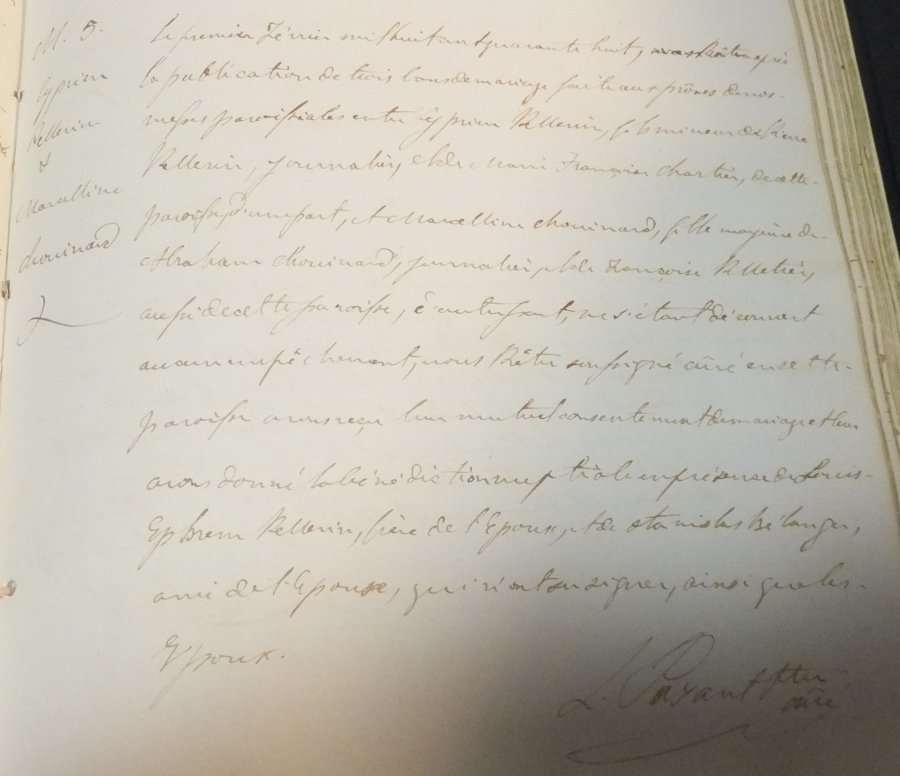 M. 5.
Cyprien
Pellerin
&
Marcelline
Chouinard
Le premier Février mil huit cent quarante huit, après
la publication de trois bans de mariage faite aux prônes de nos
messes paroissiales entre Cyprien Pellerin, fils mineur de Pierre
Pellerin, journalier, et de Marie Françoise Chartier, de cette
paroisse, d'une part, et Marcelline Chouinard, fille majeure de
Abraham Chouinard, journalier, et de Françoise Pelletier,
aussi de cette paroisse, d'autre part, ne s'étant découvert
aucun empêchement, nous Prêtre soussigné curé en cette
paroisse avons reçu leur mutuel consentement de mariage et leur
avons donné la bénédiction nuptiale en présence de Louis
Ephrem Pellerin, frère de l'Epoux, et de Stanislas Bélanger,
ami de l'Epoux, qui n'ont su signer, ainsi que les
Epoux.
L. Parant Ptre
curé